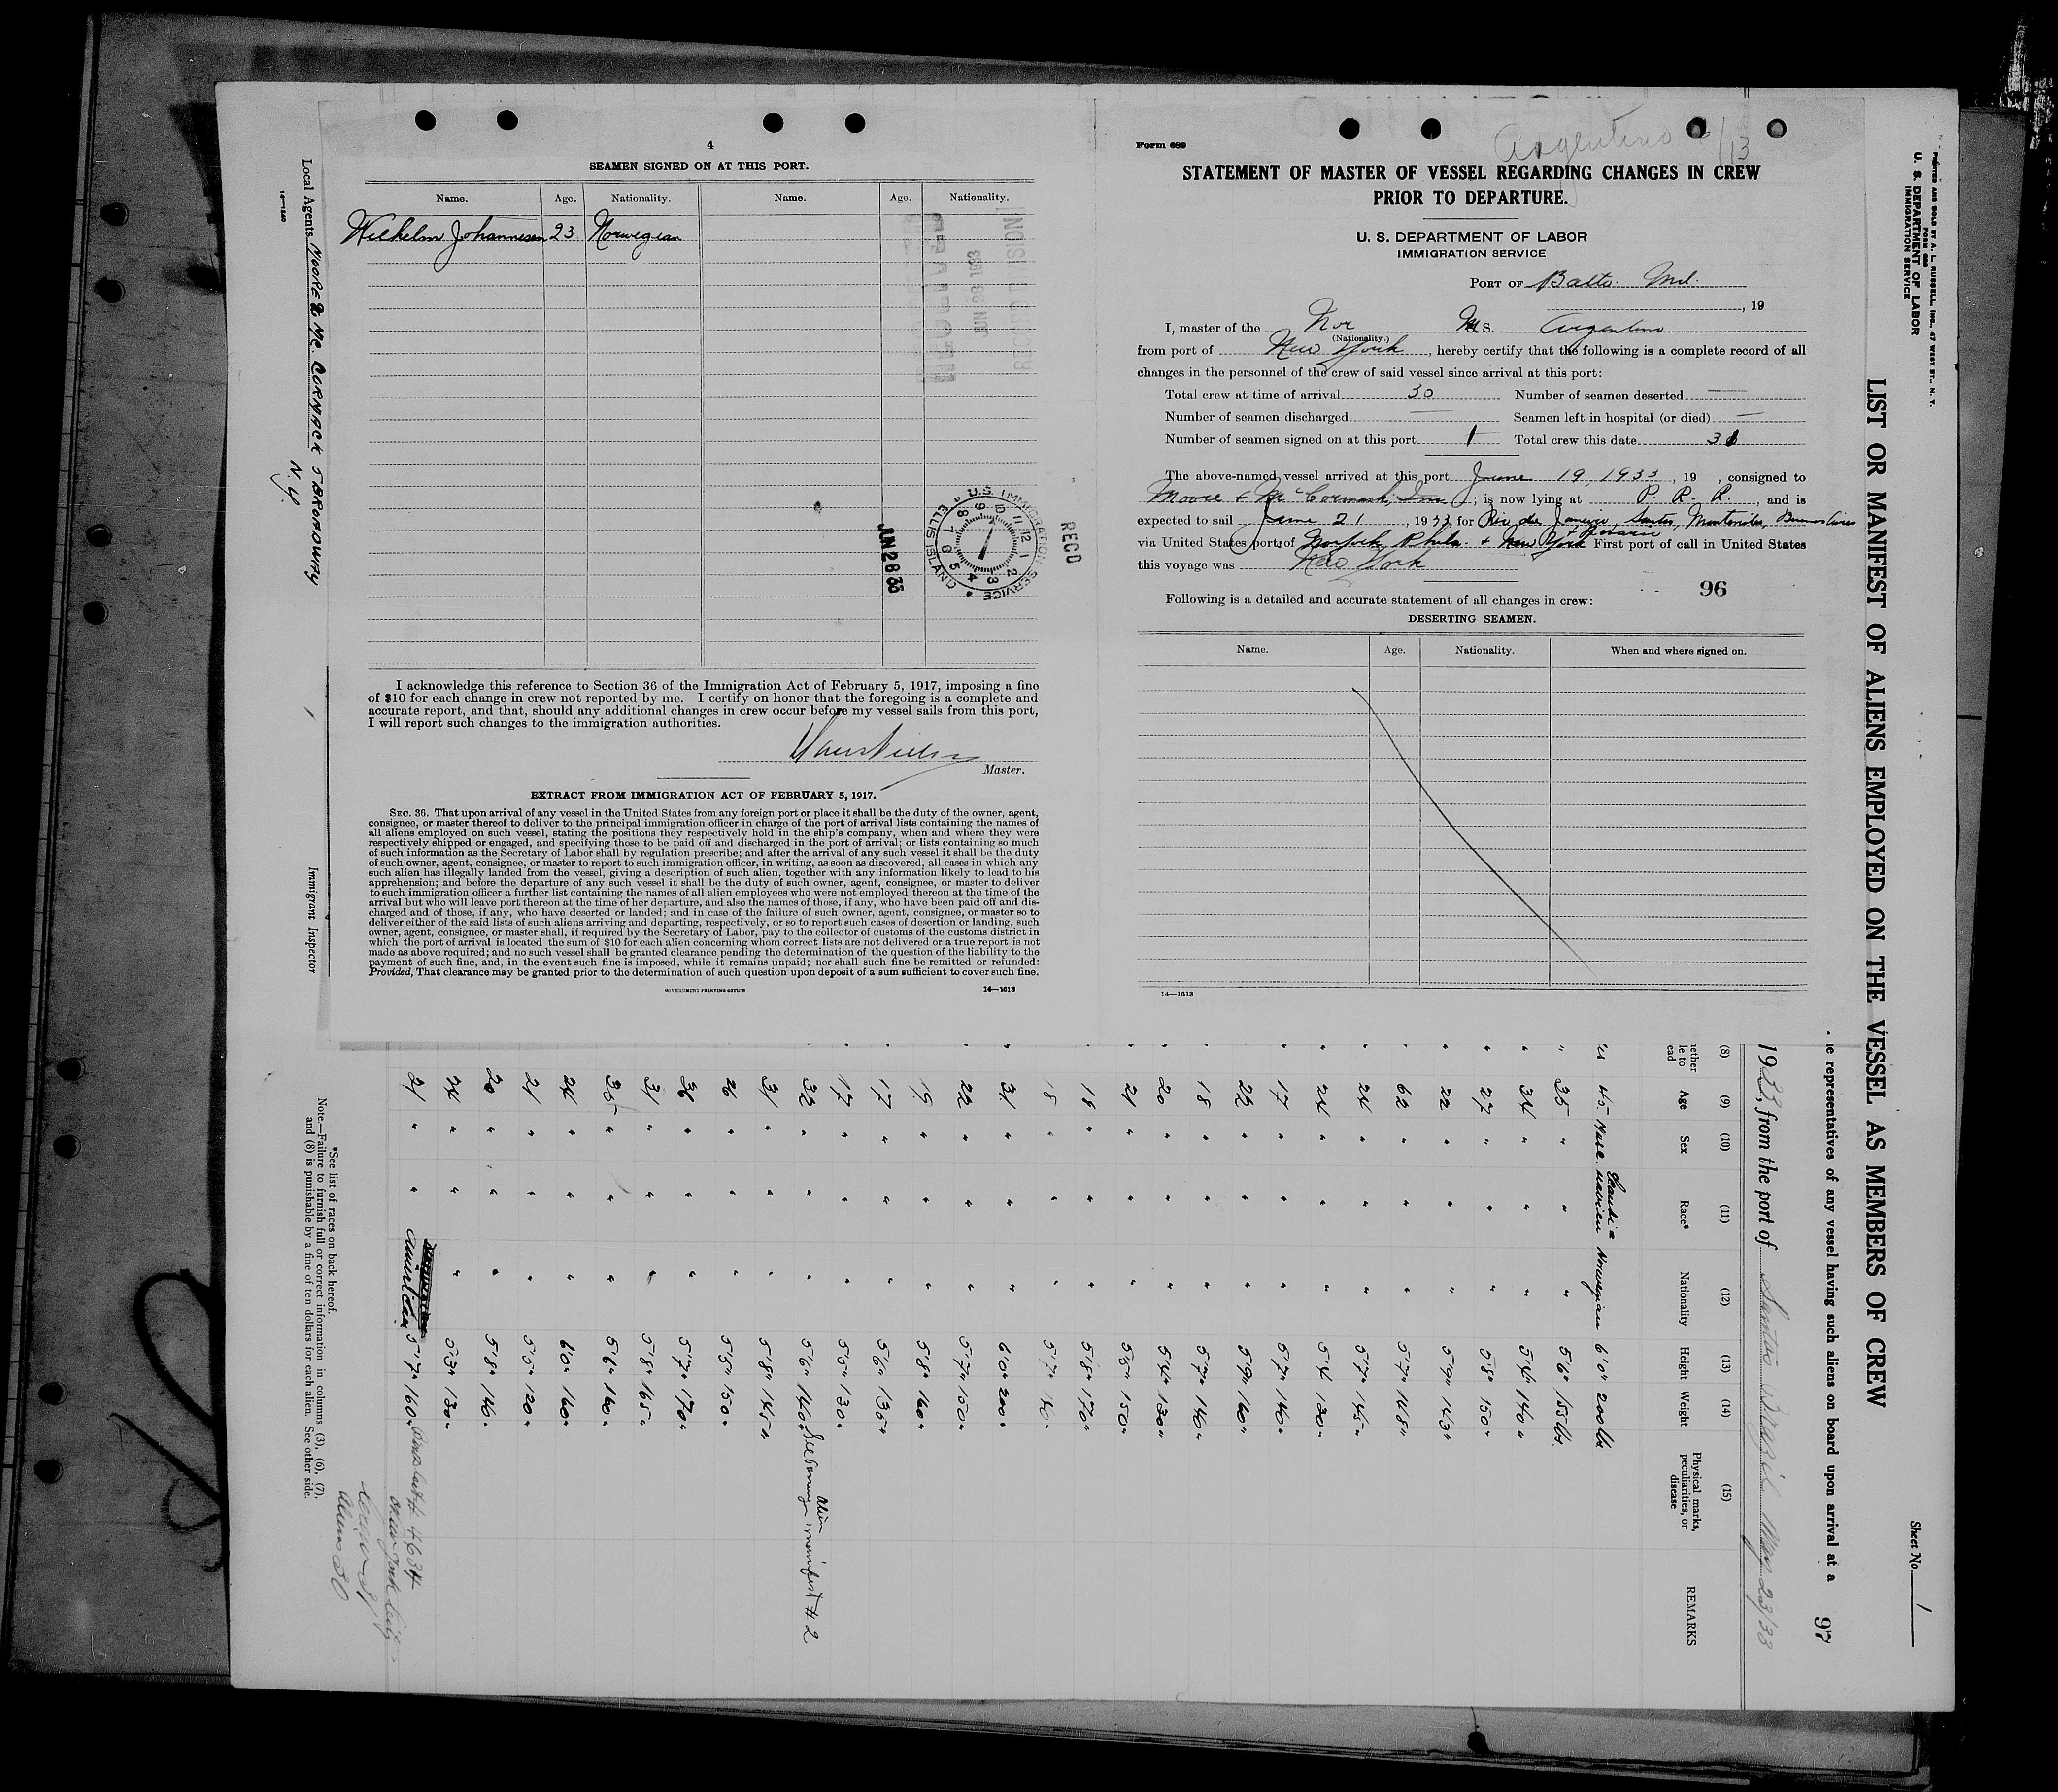 4
SEAMEN SIGNED ON AT THIS PORT.
Name. Age. Nationality. Name. Age. Nationality.
Wilhelm Johannesen 23 Norwegian
RECORD DIVISION
JUN 28 1933
JUN 28 33
U.S. IMMIGRATION SERVICE
ELLIS ISLAND
REC'D
I acknowledge this reference to Section 36 of the Immigration Act of February 5, 1917, imposing a fine
of $10 for each change in crew not reported by me. I certify on honor that the foregoing is a complete and
accurate report, and that, should any additional changes in crew occur before my vessel sails from this port,
I will report such changes to the immigration authorities.
Master.
EXTRACT FROM IMMIGRATION ACT OF FEBRUARY 5, 1917.
SEC. 36. That upon arrival of any vessel in the United States from any foreign port or place it shall be the duty of the owner, agent,
consignee, or master thereof to deliver to the principal immigration officer in charge of the port of arrival lists containing the names of
all aliens employed on such vessel, stating the positions they respectively hold in the ship's company, when and where they were
respectively shipped or engaged, and specifying those to be paid off and discharged in the port of arrival; or lists containing so much
of such information as the Secretary of Labor shall by regulation prescribe; and after the arrival of any such vessel it shall be the duty
of such owner, agent, consignee, or master to report to such immigration officer, in writing, as soon as discovered, all cases in which any
such alien has illegally landed from the vessel, giving a description of such alien, together with any information likely to lead to his
apprehension; and before the departure of any such vessel it shall be the duty of such owner, agent, consignee, or master to deliver
to such immigration officer a further list containing the names of all alien employees who were not employed thereon at the time of the
arrival but who will leave port thereon at the time of her departure, and also the names of those, if any, who have been paid off and dis-
charged and of those, if any, who have deserted or landed; and in case of the failure of such owner, agent, consignee, or master so to
deliver either of the said lists of such aliens arriving and departing, respectively, or so to report such cases of desertion or landing, such
owner, agent, consignee, or master shall, if required by the Secretary of Labor, pay to the collector of customs of the customs district in
which the port of arrival is located the sum of $10 for each alien concerning whom correct lists are not delivered or a true report is not
made as above required; and no such vessel shall be granted clearance pending the determination of the question of the liability to the
payment of such fine, and, in the event such fine is imposed, while it remains unpaid; nor shall such fine be remitted or refunded:
Provided, That clearance may be granted prior to the determination of such question upon deposit of a sum sufficient to cover such fine.
GOVERNMENT PRINTING OFFICE 14—1613
Form 689
Argentino 6/13
STATEMENT OF MASTER OF VESSEL REGARDING CHANGES IN CREW
PRIOR TO DEPARTURE.
U. S. DEPARTMENT OF LABOR
IMMIGRATION SERVICE
PORT OF Balto. Md.
, 19
I, master of the Nor M.S. Argentino
(Nationality.)
from port of New York, hereby certify that the following is a complete record of all
changes in the personnel of the crew of said vessel since arrival at this port:
Total crew at time of arrival 30 Number of seamen deserted —
Number of seamen discharged — Seamen left in hospital (or died) —
Number of seamen signed on at this port 1 Total crew this date 31
The above-named vessel arrived at this port June 19, 1933, 19 , consigned to
Moore & McCormack, Inc; is now lying at P. R. R., and is
expected to sail June 21, 1933, for Rio de Janeiro, Santos, Montevideo, Buenos Aires
via United States port of Norfolk, Phila. + New York First port of call in United States
this voyage was New York
96
Following is a detailed and accurate statement of all changes in crew:
DESERTING SEAMEN.
Name. Age. Nationality. When and where signed on.
14—1613
PRINTED AND SOLD BY A. L. RUSSELL, INC., 47 WEST ST., N. Y.
FORM 680
U. S. DEPARTMENT OF LABOR
IMMIGRATION SERVICE
Sheet No. 1
LIST OR MANIFEST OF ALIENS EMPLOYED ON THE VESSEL AS MEMBERS OF CREW
e representatives of any vessel having such aliens on board upon arrival at a
97
1933, from the port of Santos Brazil May 23/33
(8) (9) (10) (11) (12) (13) (14) (15)
ether le to ead Age Sex Race* Nationality Height Weight Physical marks, peculiarities, or disease REMARKS
45. Male. Scandinavien Norwegian 6'0" 200 lbs
" 35 " " " 5'6" 155 lbs.
" 34 " " " 5'4" 140 "
" 27 " " " 5'8" 150 "
" 22 " " " 5'9" 143 "
" 62 " " " 5'7" 148 "
" 24 " " " 5'7" 145 "
" 24 " " " 5'4" 130 "
" 17 " " " 5'7" 140 "
" 22 " " " 5'9" 160 "
" 18 " " " 5'7" 140 "
" 20 " " " 5'4" 130 "
" 21 " " " 5'5" 150 "
" 18 " " " 5'8" 170 "
" 18 " " " 5'7" 140 "
" 31 " " " 6'0" 200 "
" 22 " " " 5'7" 150 "
" 19 " " " 5'8" 160 "
" 17 " " " 5'6" 135 "
" 17 " " " 5'5" 130 "
" 32 " " " 5'6" 140 " See manifest # 2
" 31 " " " 5'8" 145 "
" 26 " " " 5'5" 150 "
" 36 " " " 5'7" 170 "
" 31 " " " 5'8" 165 "
" 35 " " " 5'6" 160 "
" 24 " " " 6'0" 160 "
" 21 " " " 5'5" 120 "
" 20 " " " 5'8" 140 "
" 24 " " " 5'3" 130 "
21 " " American 5'7" 160 "
4634
New York City
Aliens 30
*See list of races on back hereof.
Note.—Failure to furnish full or correct information in columns (3), (6), (7),
and (8) is punishable by a fine of ten dollars for each alien. See other side.
Local Agents MOORE & Mc. CORMACK 5 BROADWAY
N.Y.
Immigrant Inspector
14—1240